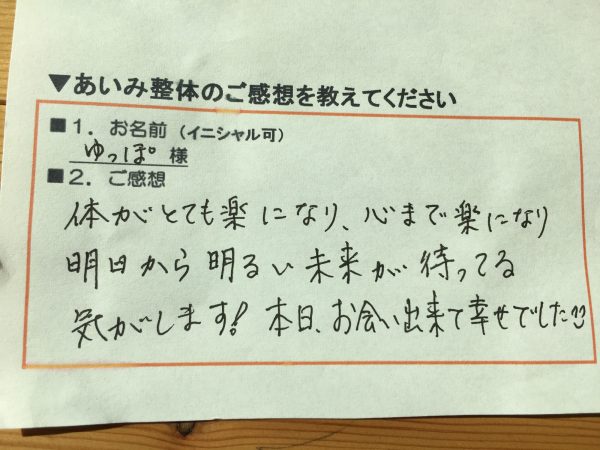 ▼あいみ整体のご感想を教えてください
■1．お名前（イニシャル可）
ゆっぽ 様
■2．ご感想
体がとても楽になり、心まで楽になり
明日から明るい未来が待ってる
気がします！本日、お会い出来て幸せでした